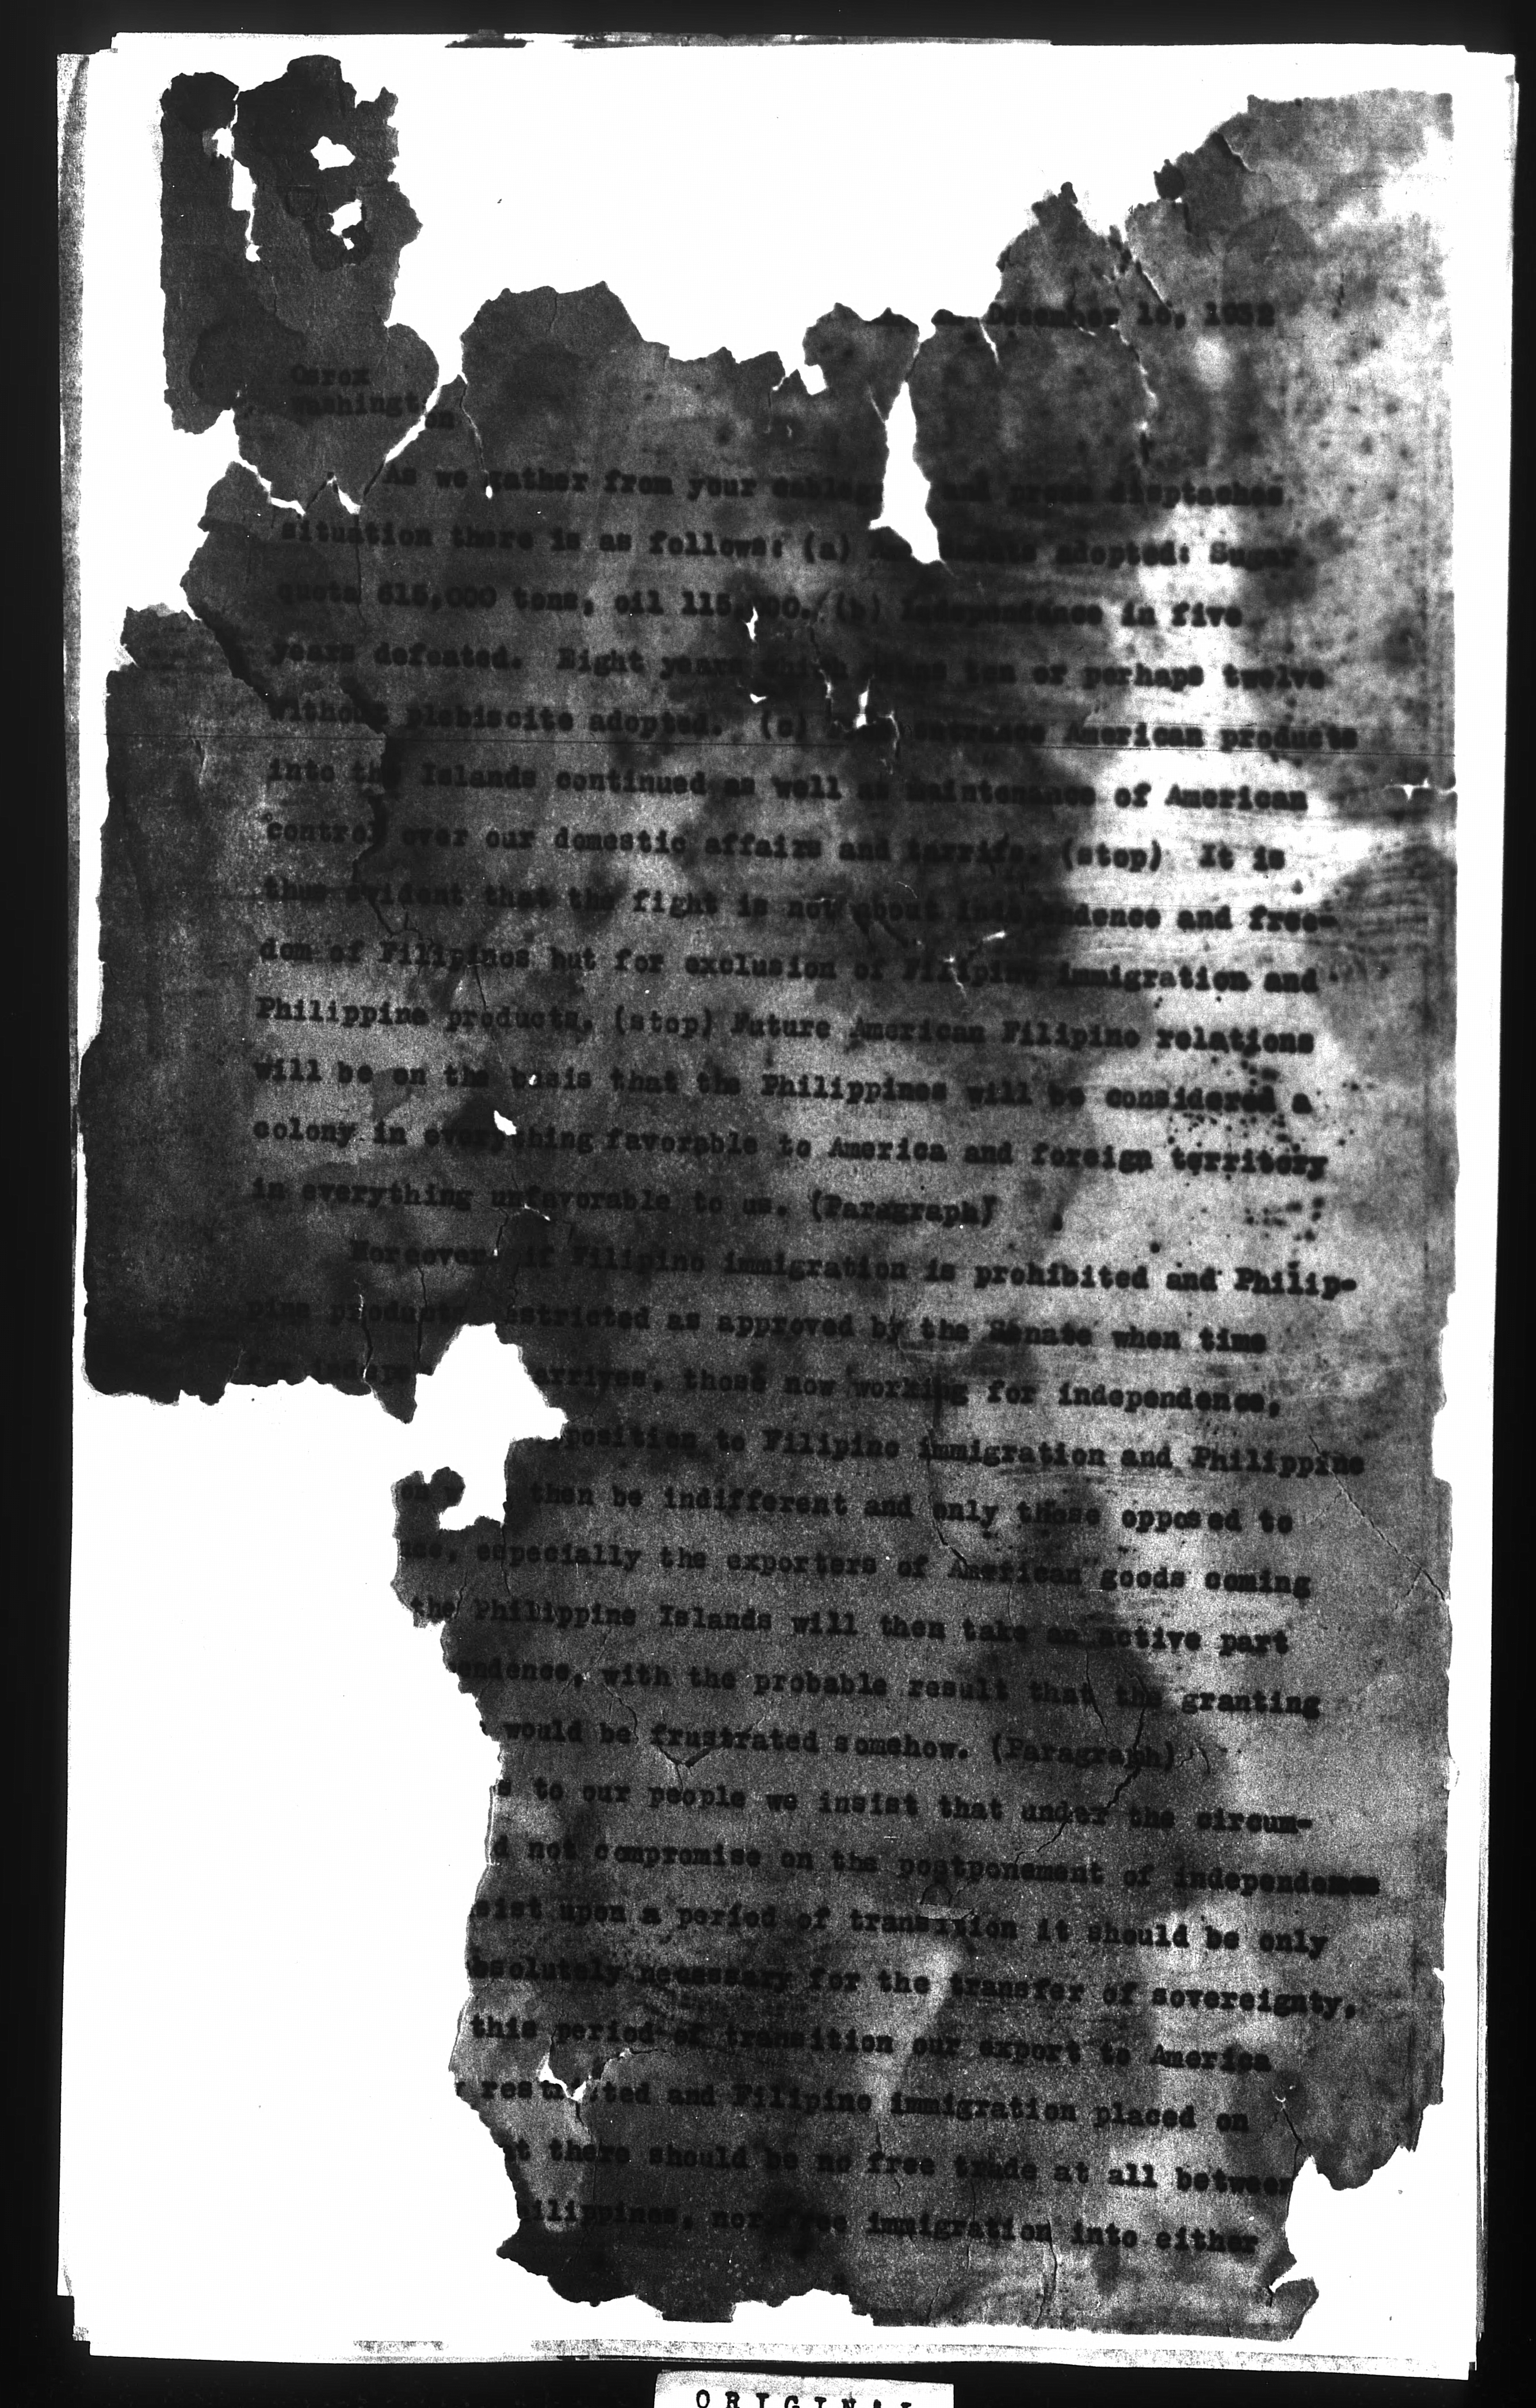 December 16, 1932
Osrox
Washington
As we gather from your and press disptaches
situation there is as follows: (a) adopted: Sugar
quota 615,000 tons, oil 115,000. (b) Independence in five
years defeated. Eight years which means ten or perhaps twelve
without plebiscite adopted. (c) entrance American products
into the Islands continued as well as maintenance of American
control over our domestic affairs and tarrifs. (stop) It is
thus evident that the fight is not about independence and free-
dom of Filipinos but for exclusion of Filipino immigration and
Philippine products. (stop) Future American Filipino relations
will be on the basis that the Philippines will be considered a
colony in everything favorable to America and foreign territory
in everything unfavorable to us. (Paragraph)
Moreover if Filipino immigration is prohibited and Philip-
pine products estricted as approved by the Senate when time
for indep arrives, those now working for independence,
position to Filipino immigration and Philippine
then be indifferent and only those opposed to
nce, especially the exporters of American goods coming
the Philippine Islands will then take an active part
endence, with the probable result that the granting
would be frustrated somehow. (Paragraph)
s to our people we insist that under the circum-
d not compromise on the postponement of independence
sist upon a period of transition it should be only
bsolutely necessary for the transfer of sovereignty,
this period of transition our export to America
restricted and Filipino immigration placed on
t there should be no free trade at all between
ilippines, nor free immigration into either
ORIGINAL